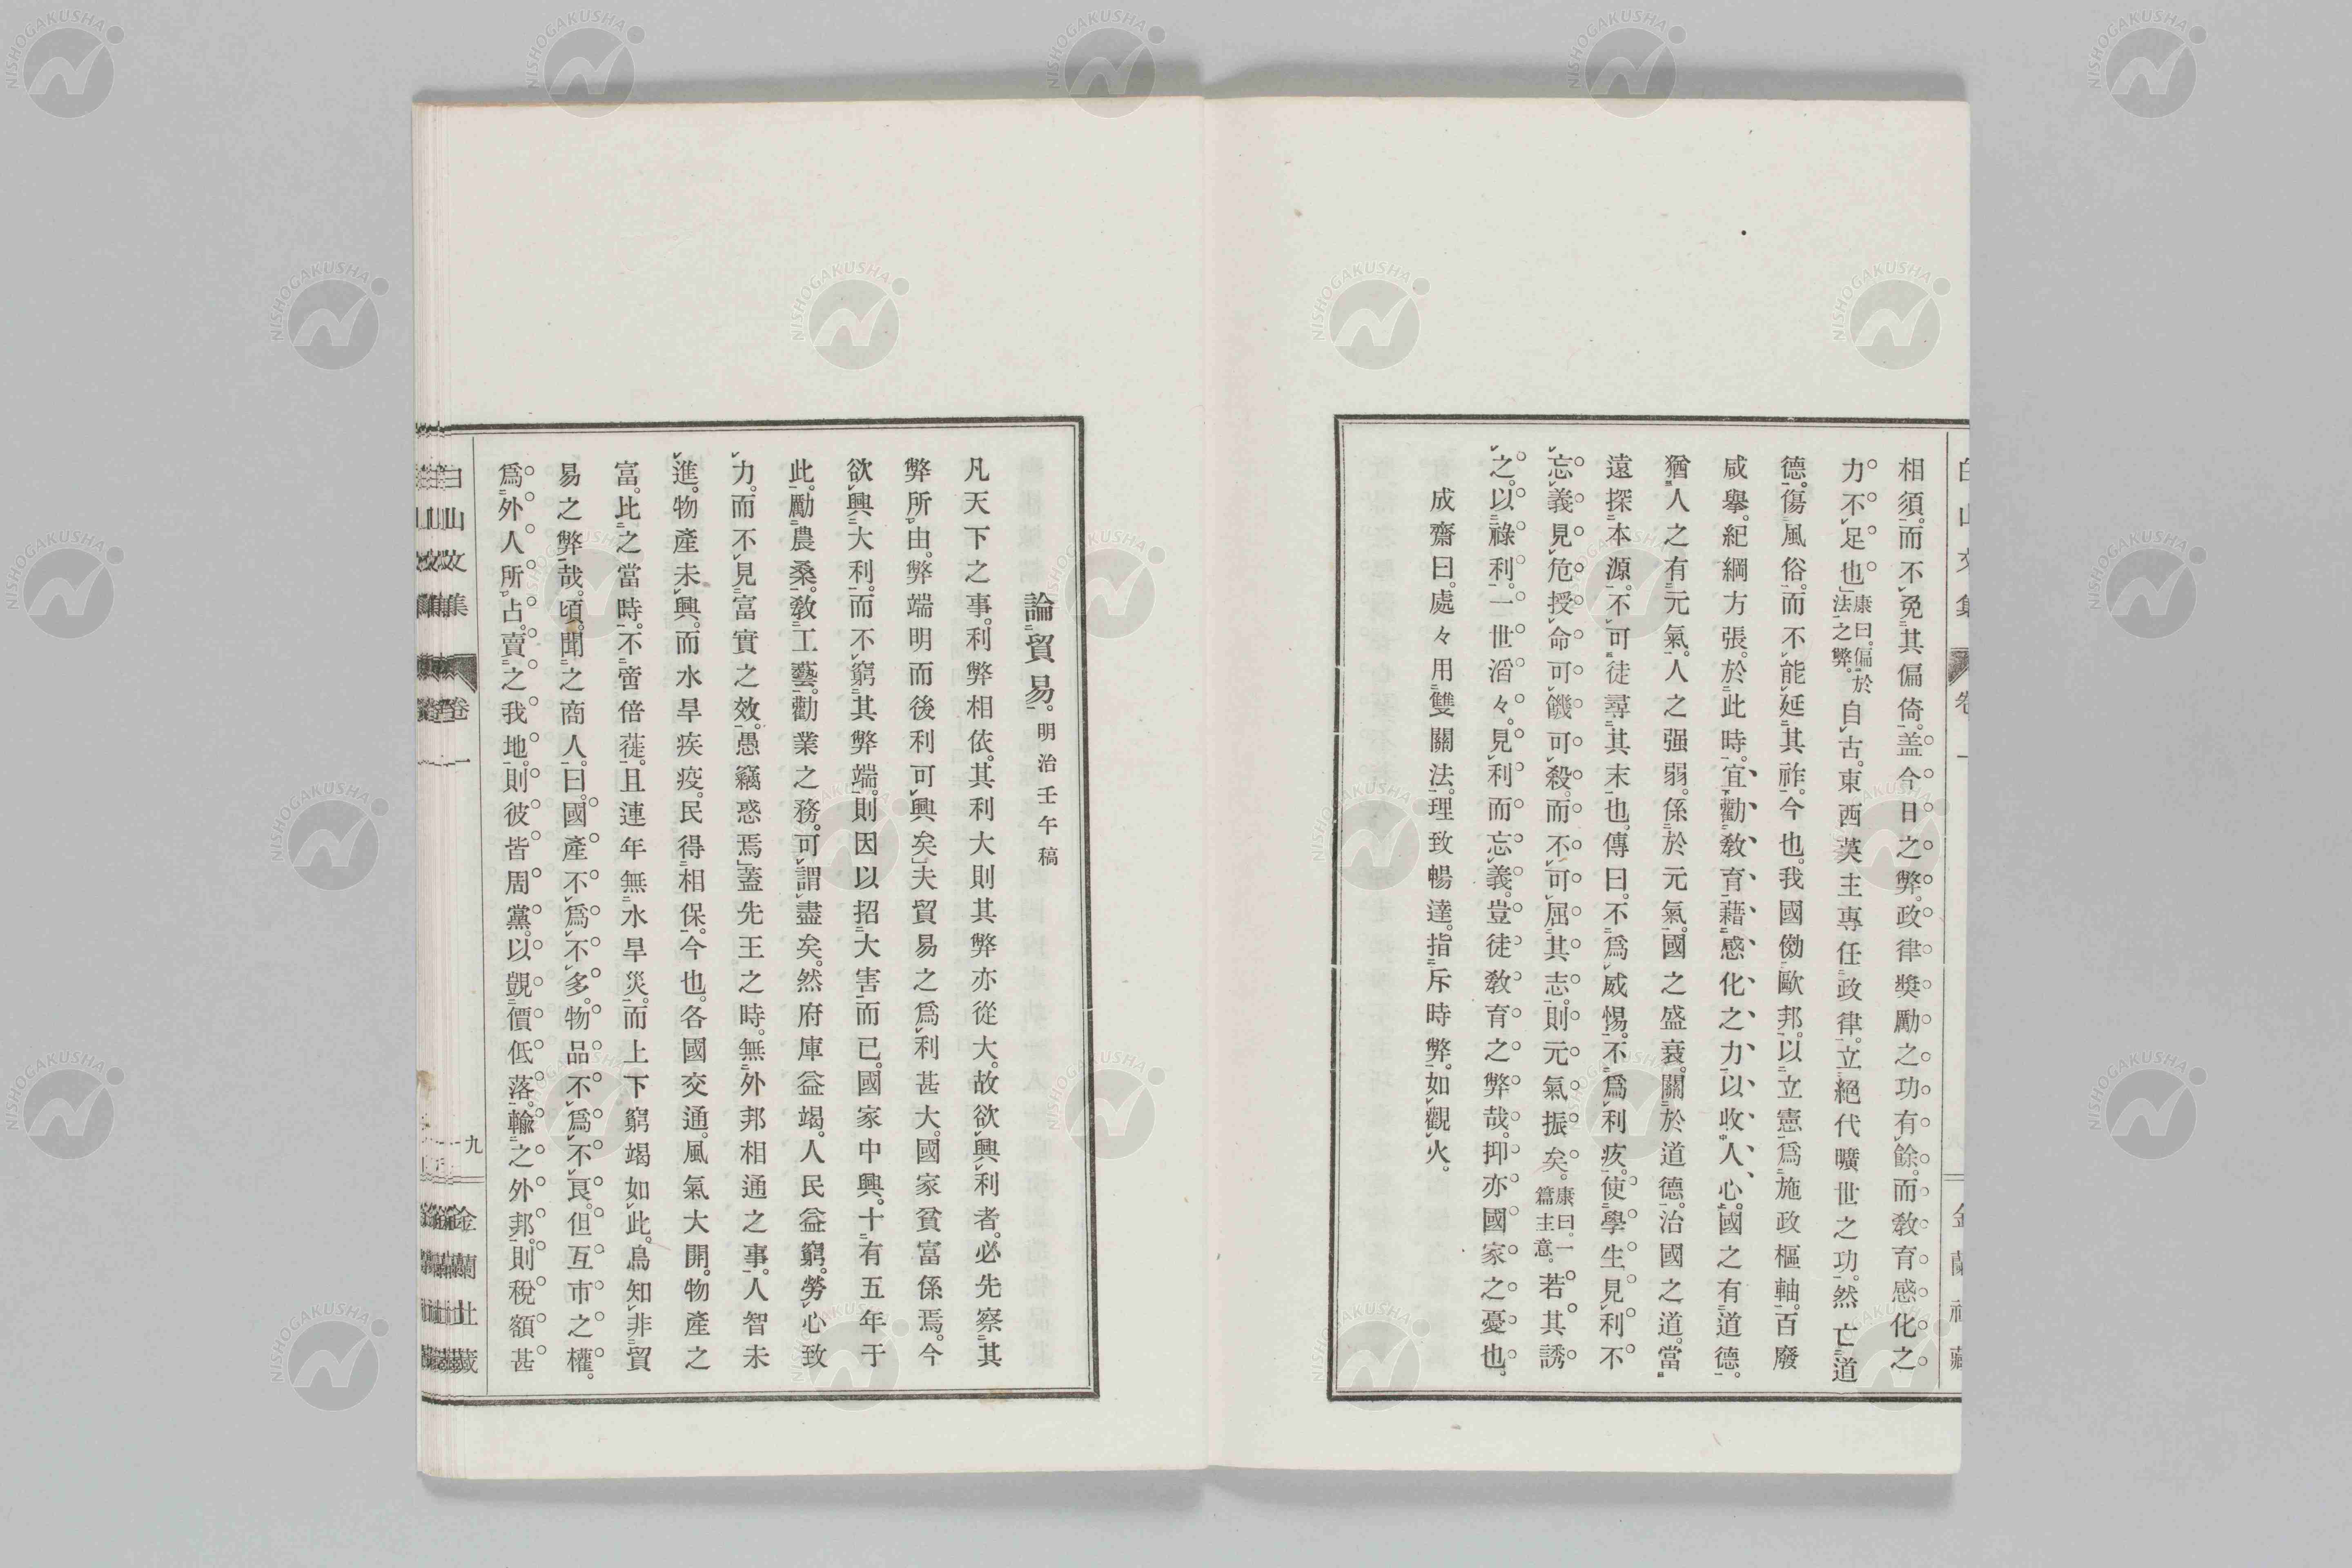 相須。而不免其偏倚。盖今日之弊。政律奬勵之功有餘。而教育感化之
力不足也」康曰。偏於法之弊。自古。東西英主專任政律。立絕代曠世之功。然亡道
德。傷風俗。而不能延其祚。今也。我國傚歐邦。以立憲爲施政樞軸。百廢
咸擧。紀綱方張。於此時。宜勸教育、藉感化之力、以收人心。國之有道德。
猶人之有元氣。人之强弱。係於元氣。國之盛衰。關於道德。治國之道。當
遠探本源。不可徒尋其末也。傳曰。不爲威惕。不爲利疚。使學生見利不
忘義。見危授命。可饑可殺。而不可屈其志。則元氣振矣。康曰。一篇主意。若其誘
之。以祿利。一世滔々。見利而忘義。豈徒教育之弊哉。抑亦國家之憂也。
成齋曰。處々用雙關法。理致暢達。指斥時弊。如觀火。
論貿易。明治壬午稿
凡天下之事。利弊相依。其利大則其弊亦從大。故欲興利者。必先察其
弊所由。弊端明而後利可興矣」夫貿易之爲利甚大。國家貧富係焉。今
欲興大利。而不窮其弊端。則因以招大害而已。國家中興。十有五年于
此。勵農桑。教工藝。勸業之務。可謂盡矣。然府庫益竭。人民益窮。勞心致
力。而不見富實之效。愚竊惑焉」蓋先王之時。無外邦相通之事。人智未
進。物產未興。而水旱疾疫。民得相保。今也。各國交通。風氣大開。物產之
富。比之當時。不啻倍蓰。且連年無水旱災。而上下窮竭如此。烏知非貿
易之弊哉。頃聞之商人。曰。國產不爲不多。物品不爲不良。但互市之權。
爲外人所占。賣之我地。則彼皆周黨。以覬價低落。輸之外邦。則稅額甚
白山文集
卷一
九
金蘭社藏